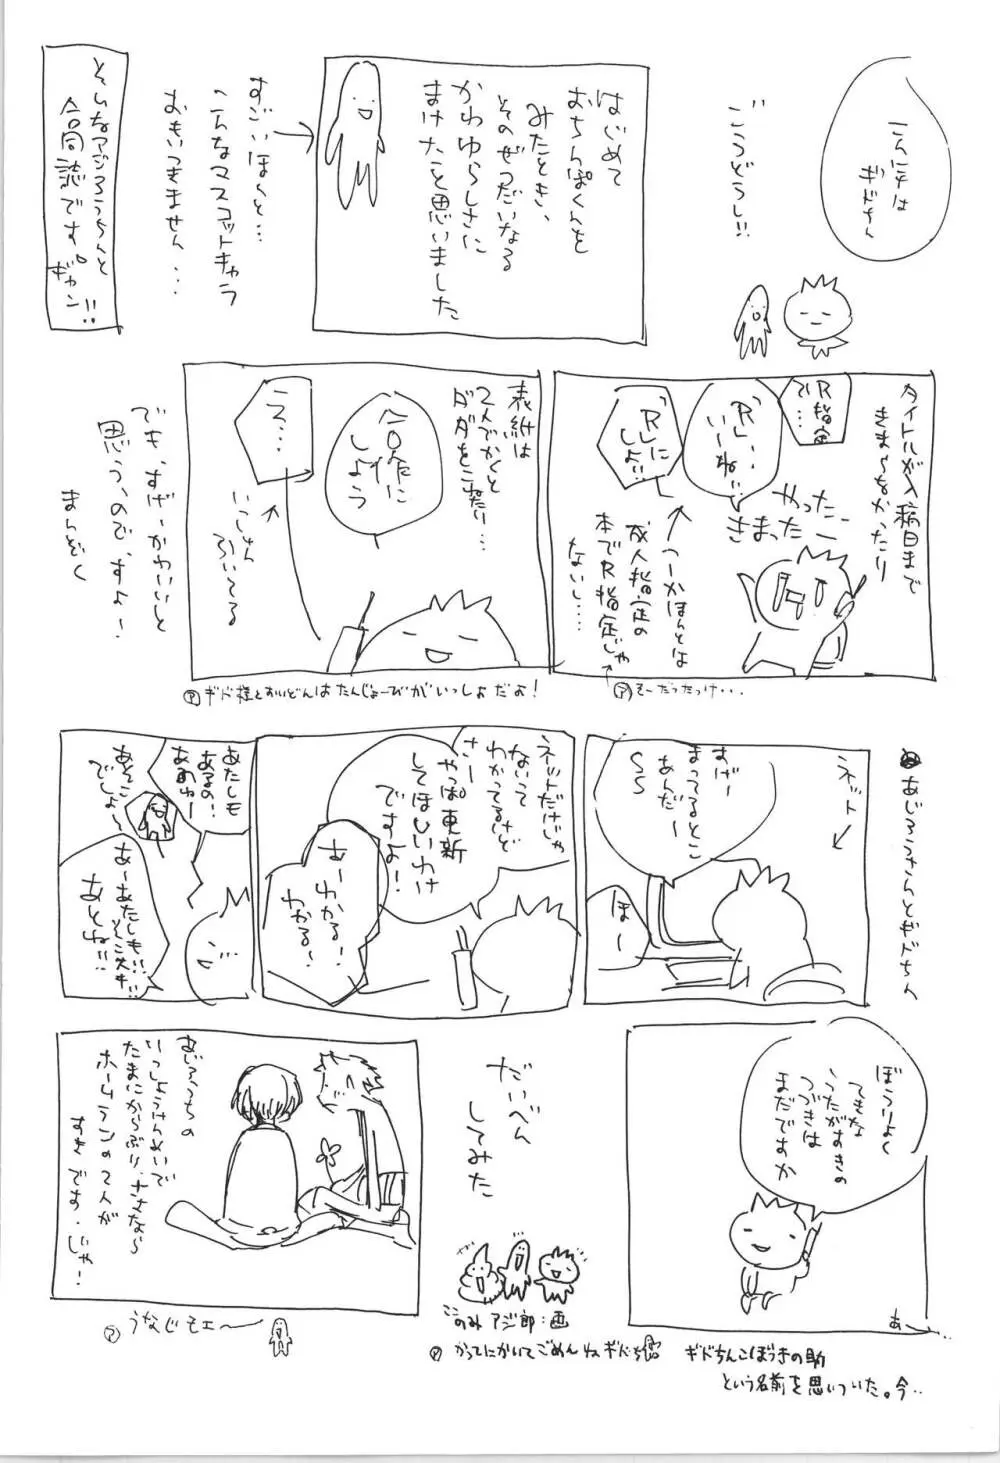 こんにちは
ギドちん
ごうどうし!!
はじめて
おちんぽくんを
みたとき、
そのぜつだいなる
かわゆらしさに
まけたと思いました
すごいほんと…
こんなマスコットキャラ
おもいつきません…
そんなアジろうちんと
合同誌です。ギャン!!
タイトルが入稿日まで
きまらなかったり
R指定
で…
「R」…
いーね…
「R」に
しよ…
やったー
きまったー
つーかほんとは
成人指定の
本でR指定じゃ
ないし…
ア そーだったっけ…
表紙は
2人でかくと
ダダをこねたり…
合作に
しよう
え…
いっしゅん
ひいてる
でも、すげーかわいいと
思う、ので、すよ!
まんぞく
ア ギド様とすいどんはたんじょーびがいっしょだよ!
あじろうさんとギドちん
ネット
すげー
まってるとこ
あんだー
ほー
ネットだけじゃ
ないって
わかってるけど
さー
やっぱ更新
してほしいわけ
ですよ!
あーわかる!
わかる!
あたしも
あるの!
あそこ
でしょ〜
あーあたしも…
そこ大キ…
あとね…
ぼうりょく
てきな
うたがすきの
つづきは
まだですか
あ〜
だいべん
してみた
ここのみ アジ郎:画
ア かってにかいてごめんねギドち
ギドちんこぼうきの助
という名前を思いついた。今…
あじろうちの
いっしょうけんめいで
たまにからぶり、ナさなら
ホームランの2人が
すきです。いや!
ア うなじモエ〜